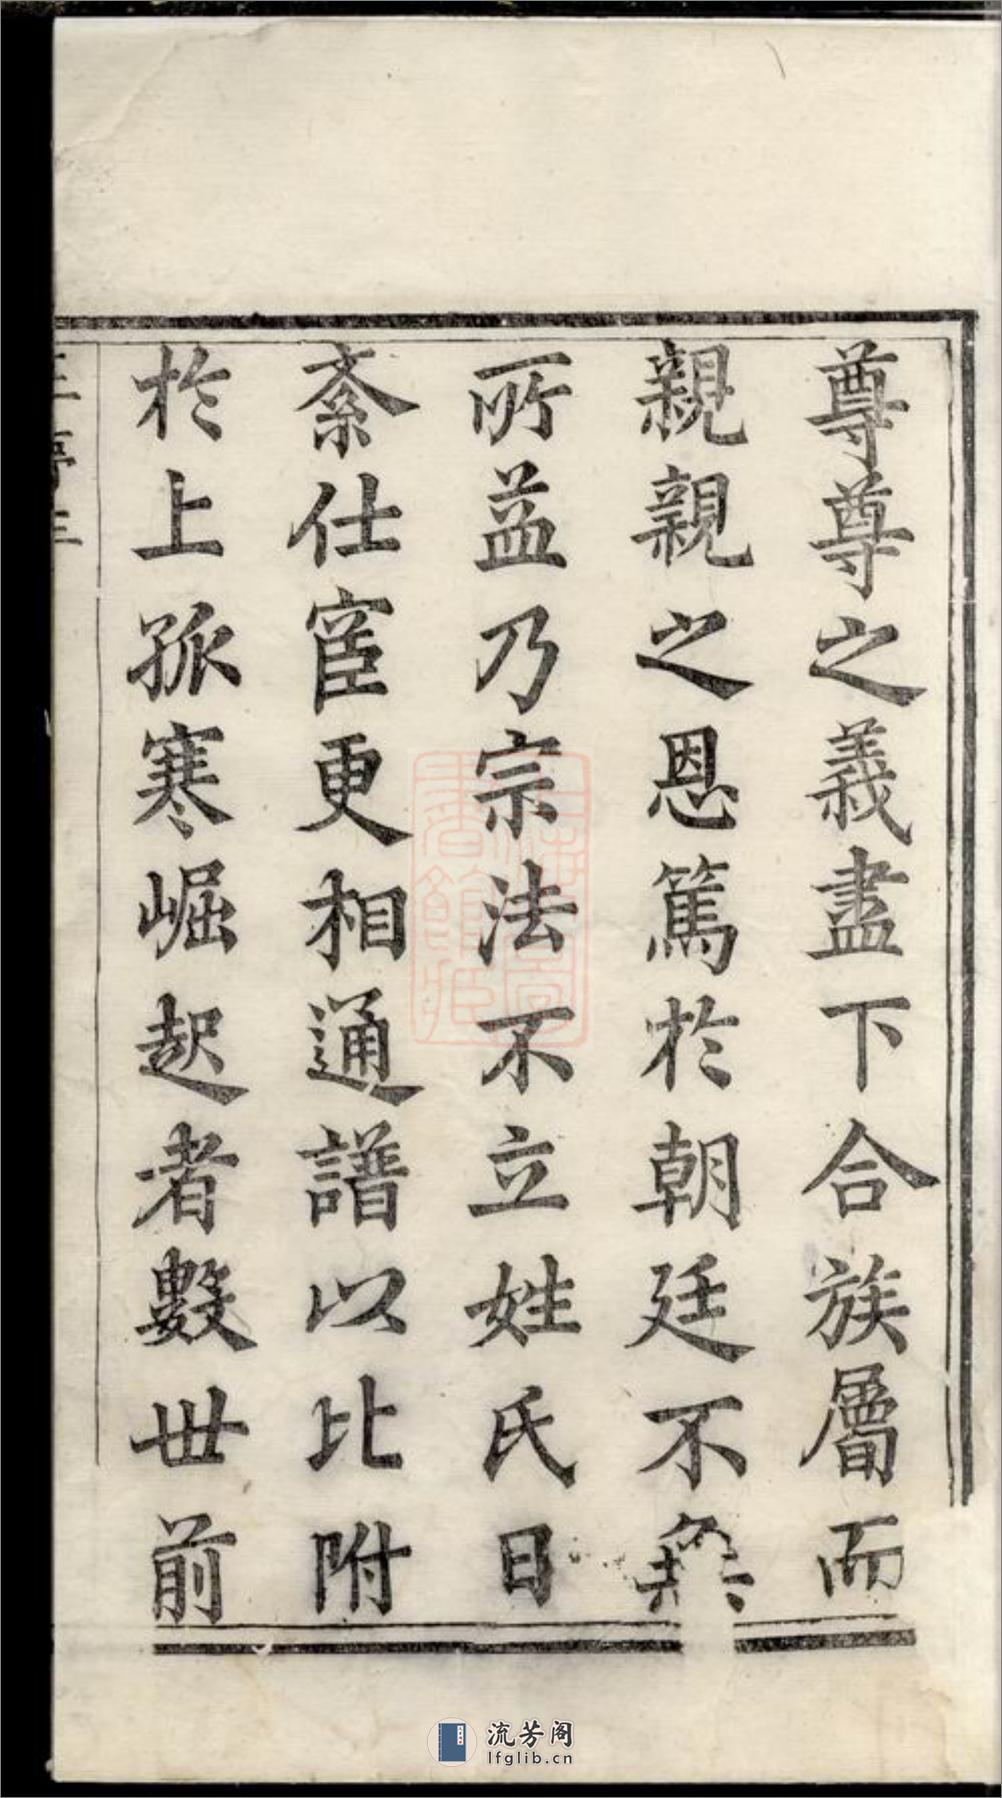 尊尊之義盡下合族層而
親親之恩篤於朝廷不無
所益乃宗法不立姓氏日
紊仕宦更相通譜以比附
於上孤寒崛起者數世前
流芳阁
lfglib.cn